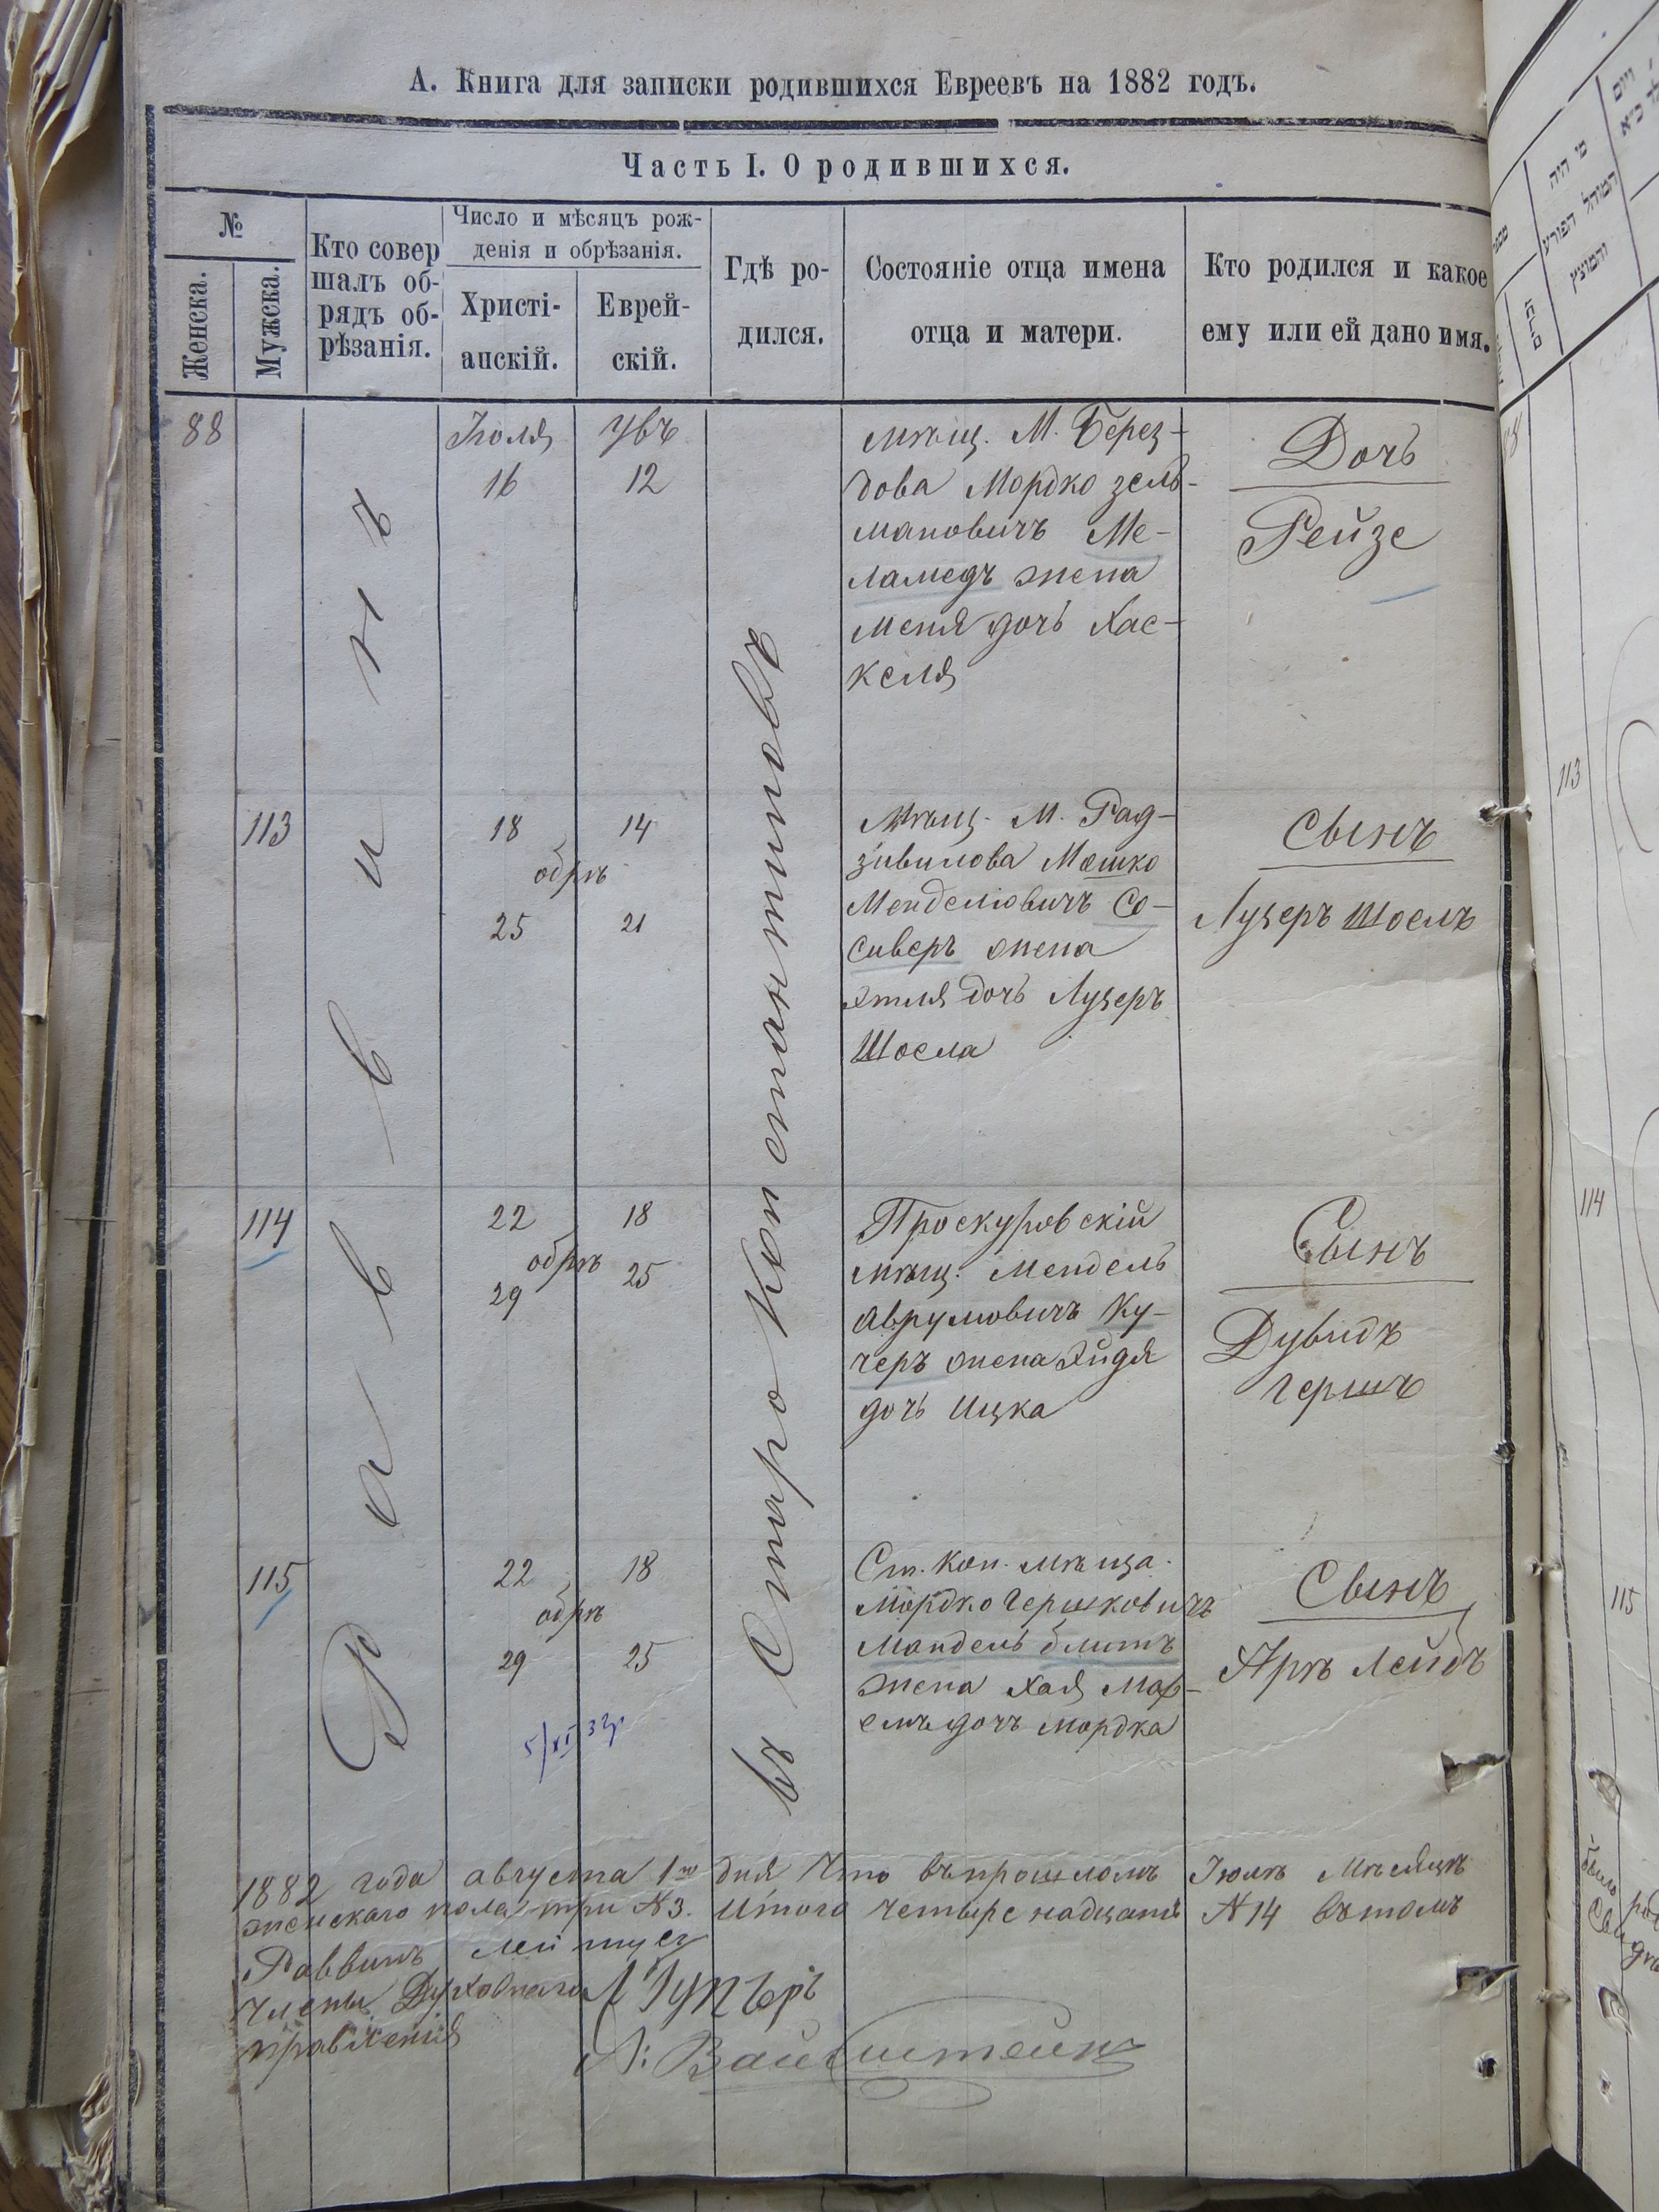 А. Книга для записки родившихся Евреевъ на 1882 годъ.
Часть I. О родившихся.
№
Женска.
Мужска.
Кто совер
шалъ об-
рядъ об-
рѣзанія.
Число и мѣсяцъ рож-
денія и обрѣзанія.
Христі-
анскій.
Еврей-
скій.
Гдѣ ро-
дился.
Состояніе отца имена
отца и матери.
Кто родился и какое
ему или ей дано имя.
Раввинъ
въ Старо Константиновѣ
88
Іюля
16
12
мѣщ. М. Берез-
дова Мордко Зель-
мановичъ Ме-
ламедъ жена
Меня дочь Хас-
келя
Дочь
Рейзе
113
18
14
обрѣ
25
21
мѣщ. М. Рад-
зивилова Мошко
Менделіовичъ Со-
сиверъ жена
Этля дочь Лузеръ
Шоела
Сынъ
Лузеръ Шоелъ
114
22
18
обрѣ
29
25
Проскуровскій
мѣщ. Мендель
Аврумовичъ Ку-
черъ жена Эйдя
дочь Ицка
Сынъ
Дувидъ
Гершъ
115
22
18
обрѣ
29
25
Ст. Кон. мѣща.
Мордко Гершковичъ
Мандель блитъ
жена Хая
дочъ Мордка
Сынъ
Лейбъ
5/XI 32г
1882 года августа 1го дня Что въ прошломъ Іюлѣ Мѣсяцѣ
женскаго пола три №3. Итого четыренадцать №14 въ томъ
Раввинъ
Члены Духовнаго
правленія
מי היה
המוהל הפורע
והמוצץ
113
114
115